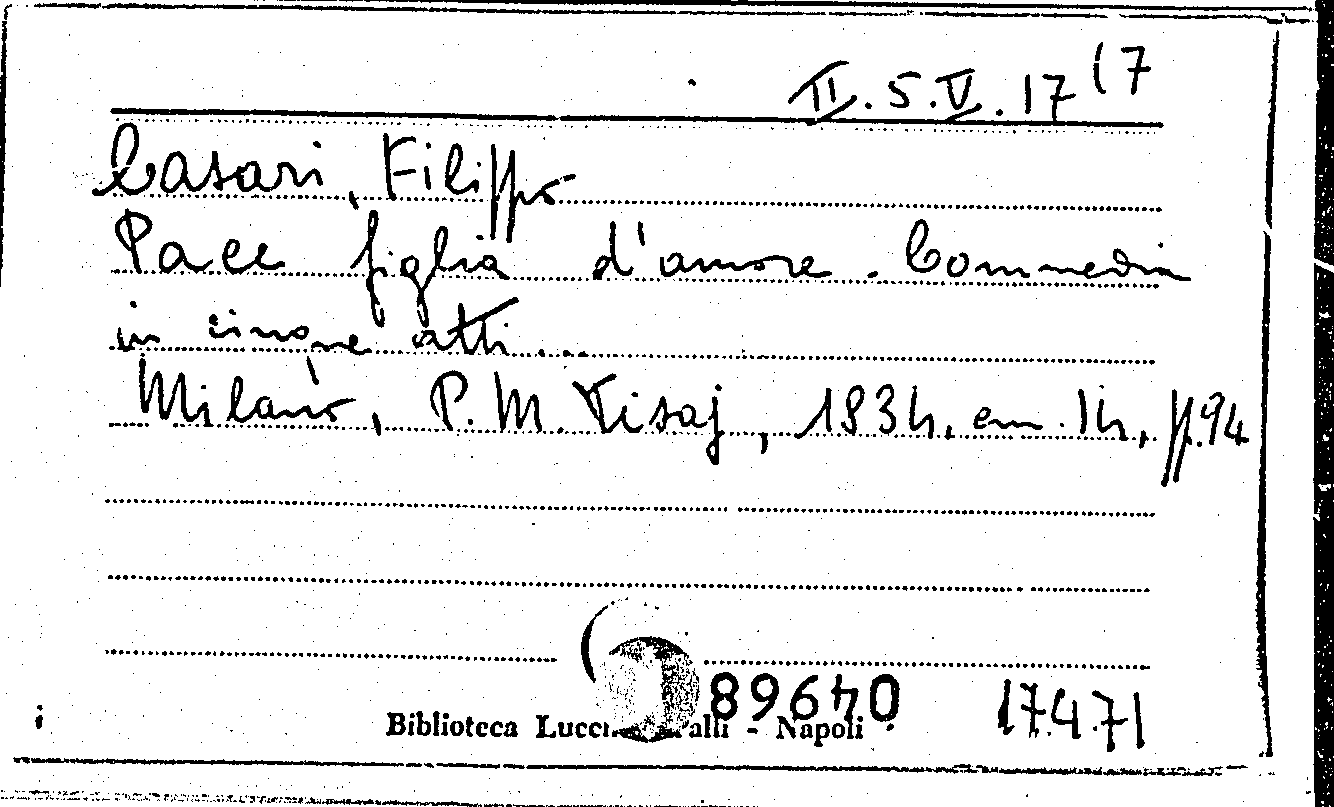 II.5.V.17 (7
Casari, Filippo
Pace figlia d'amore. Commedia
in cinque atti...
Milano, P. M. Visaj, 1834, cm. 14, pp. 94
049689
Biblioteca - Napoli
17471